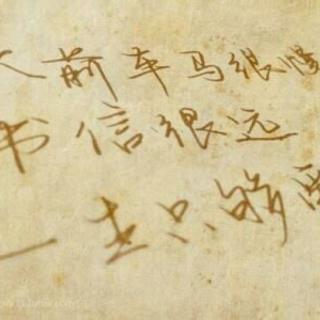 从前车马很慢
书信很远
一生只够爱